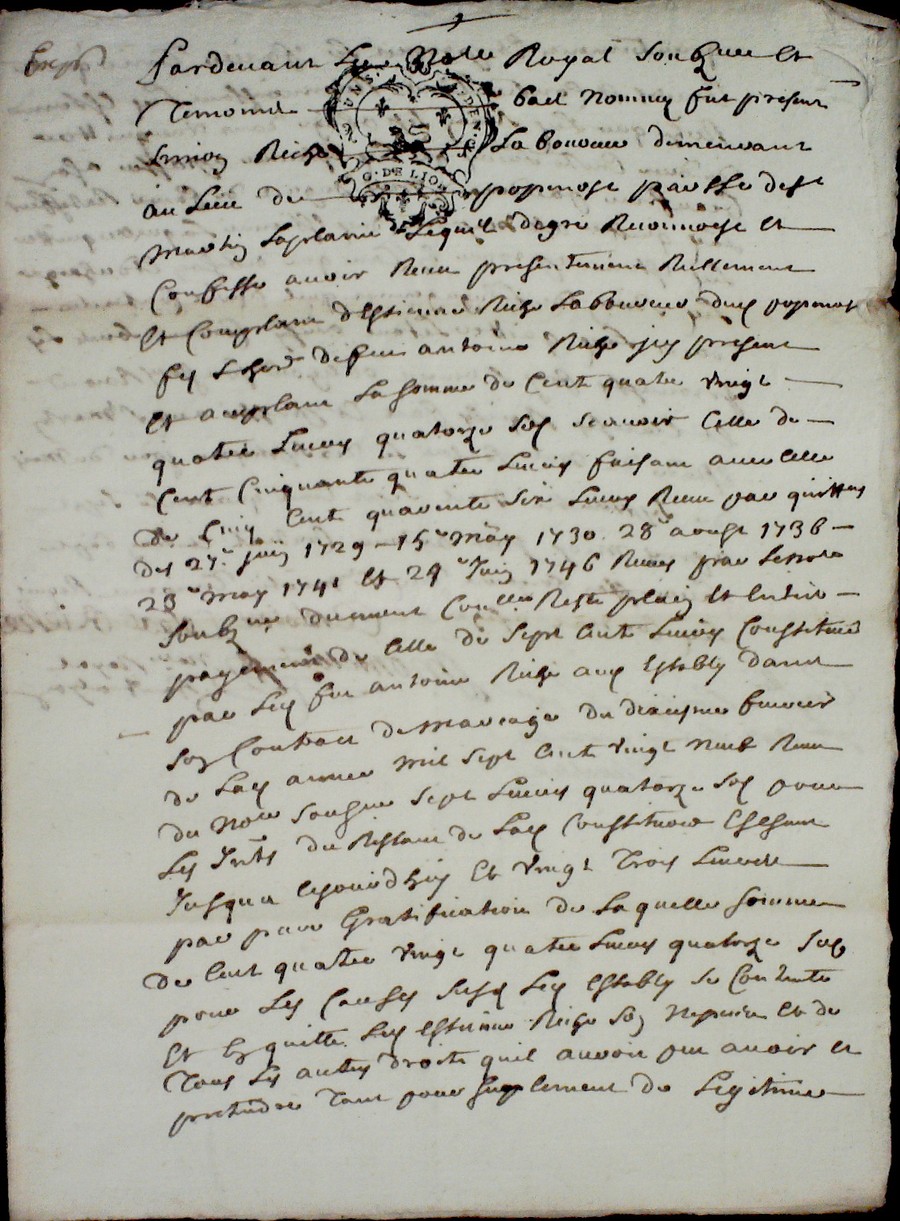 Pardevant Le Notre Royal Soubzne et
Temoins bas Nommes fut present
Simon Laboureur demeurant
G. DE LION
au Lieu de popenost paresse de St
Martin Laplaine Lequel de gre Reconnoist et
Confesse avoir Receu presentement Reellement
et Comptant d'Estienne Laboureur dud popenost
fils & her de feu antoine present
et acceptant La somme de Cent quatre vingt
quatre Livres quatorze sols scavoir Celle de
Cent Cinquante quatre Livres faisant avec Celle
de Cinq Cent quarente six Livres Receue par quittces
des 27e juin 1729 - 15e may 1730 28e aoust 1736
23e may 1741 et 29e Juin 1746 Receues par le Notre
Soubzne dument Conllees Reste plein et Entier
payement de Celle de Sept Cent Livres Constituee
par led feu antoine aud Estably dans
son Contract de Mariage du dixiesme fevrier
de Lad annee mil sept Cent vingt neuf Receu
du Notre Soussigne sept Livres quatorze sols pour
Les Intts du Restant de Lad Constitution
Jusqua Cejourdhuy et vingt Trois Livres
par pure Gratification de Laquelle somme
de Cent quatre vingt quatre Livres quatorze sols
pour Les Causes susd Led Estably se Contente
et En quitte Led Estienne son Nepveu et de
Tous Les autres droits quil avoit peu avoir et
pretendre Tant pour suplement de Legitime